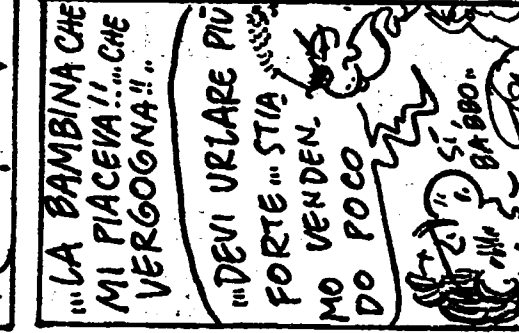 ...LA BAMBINA CHE
MI PIACEVA!!...CHE
VERGOGNA!!..
...DEVI URLARE PIÙ
FORTE...STIA
MO VENDEN-
DO POCO
SÍ,
BABBO..